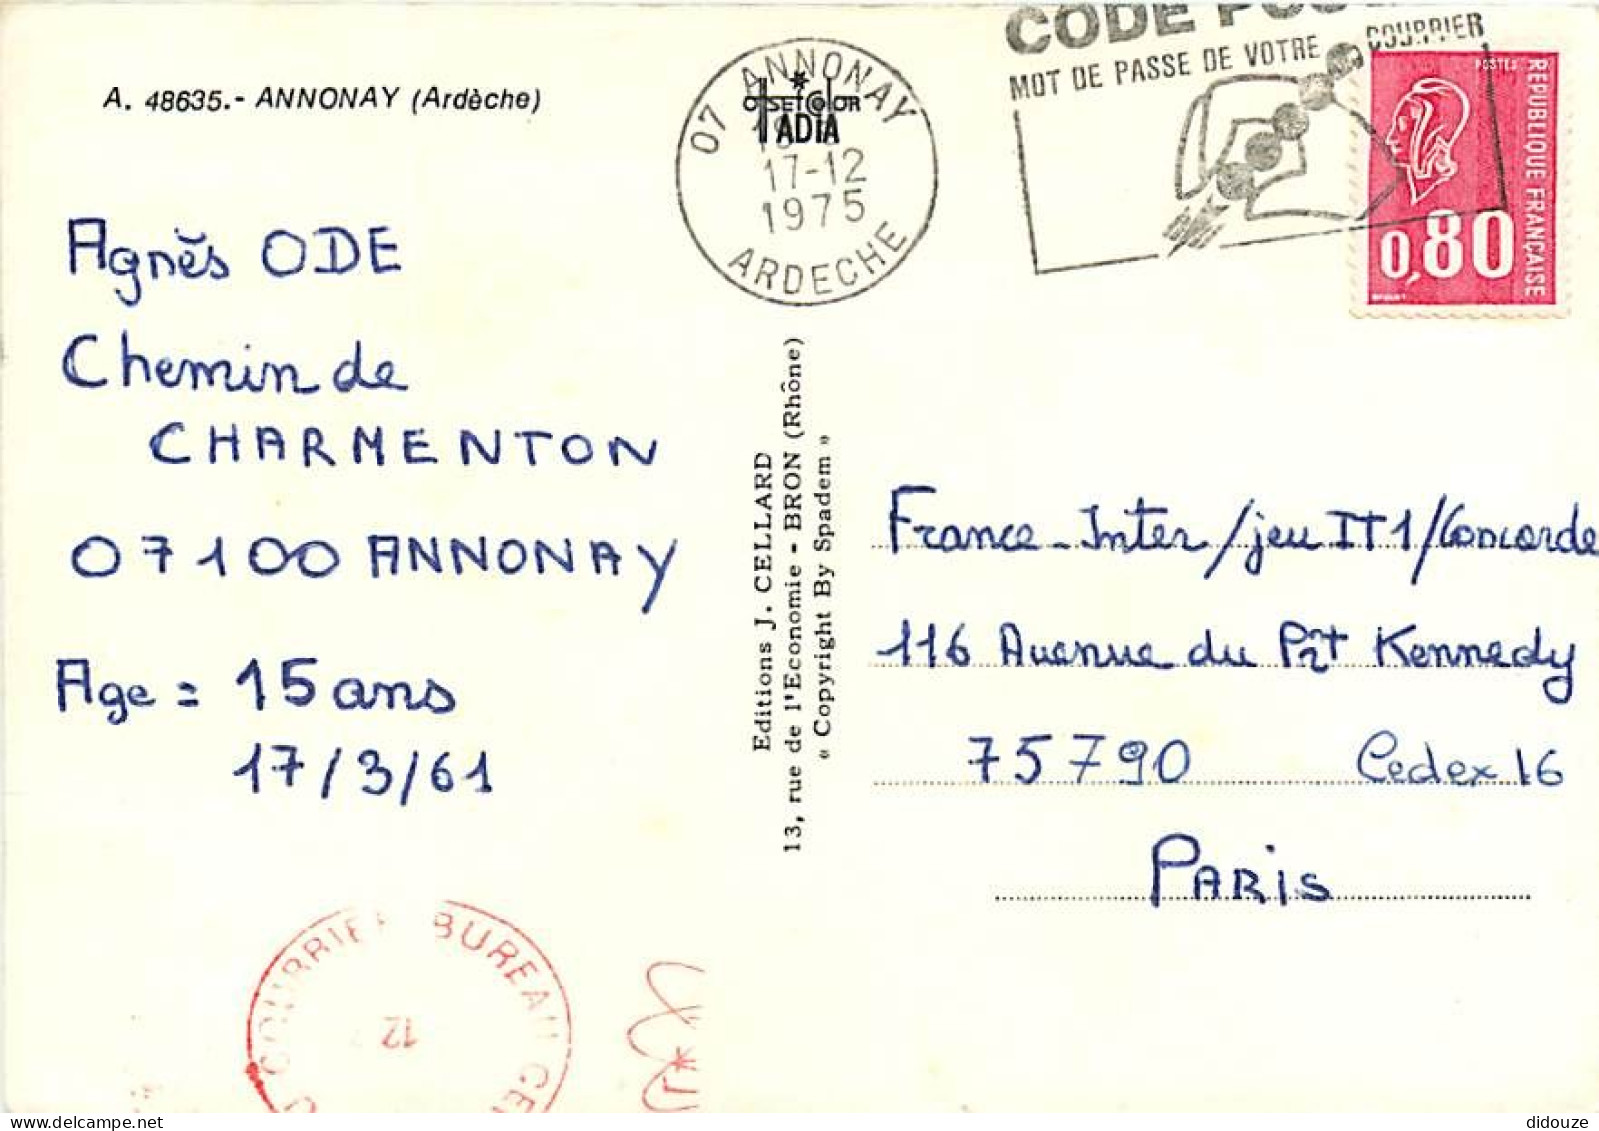 A. 48635.- ANNONAY (Ardèche)
Agnès ODE
Chemin de
CHARMENTON
07100 ANNONAY
Age = 15 ans
17/3/61
07 ANNONAY
17-12
1975
ARDECHE
OFFSET COLOR
ADIA
CODE
MOT DE PASSE DE VOTRE COURRIER
POSTES
REPUBLIQUE FRANÇAISE
0,80
Editions J. CELLARD
13, rue de l'Economie - BRON (Rhône)
« Copyright By Spadem »
France-Inter/jeu IT1/Concorde
116 Avenue du Pzt Kennedy
75790 Cedex 16
PARIS
COURRIER BUREAU
12
didouze